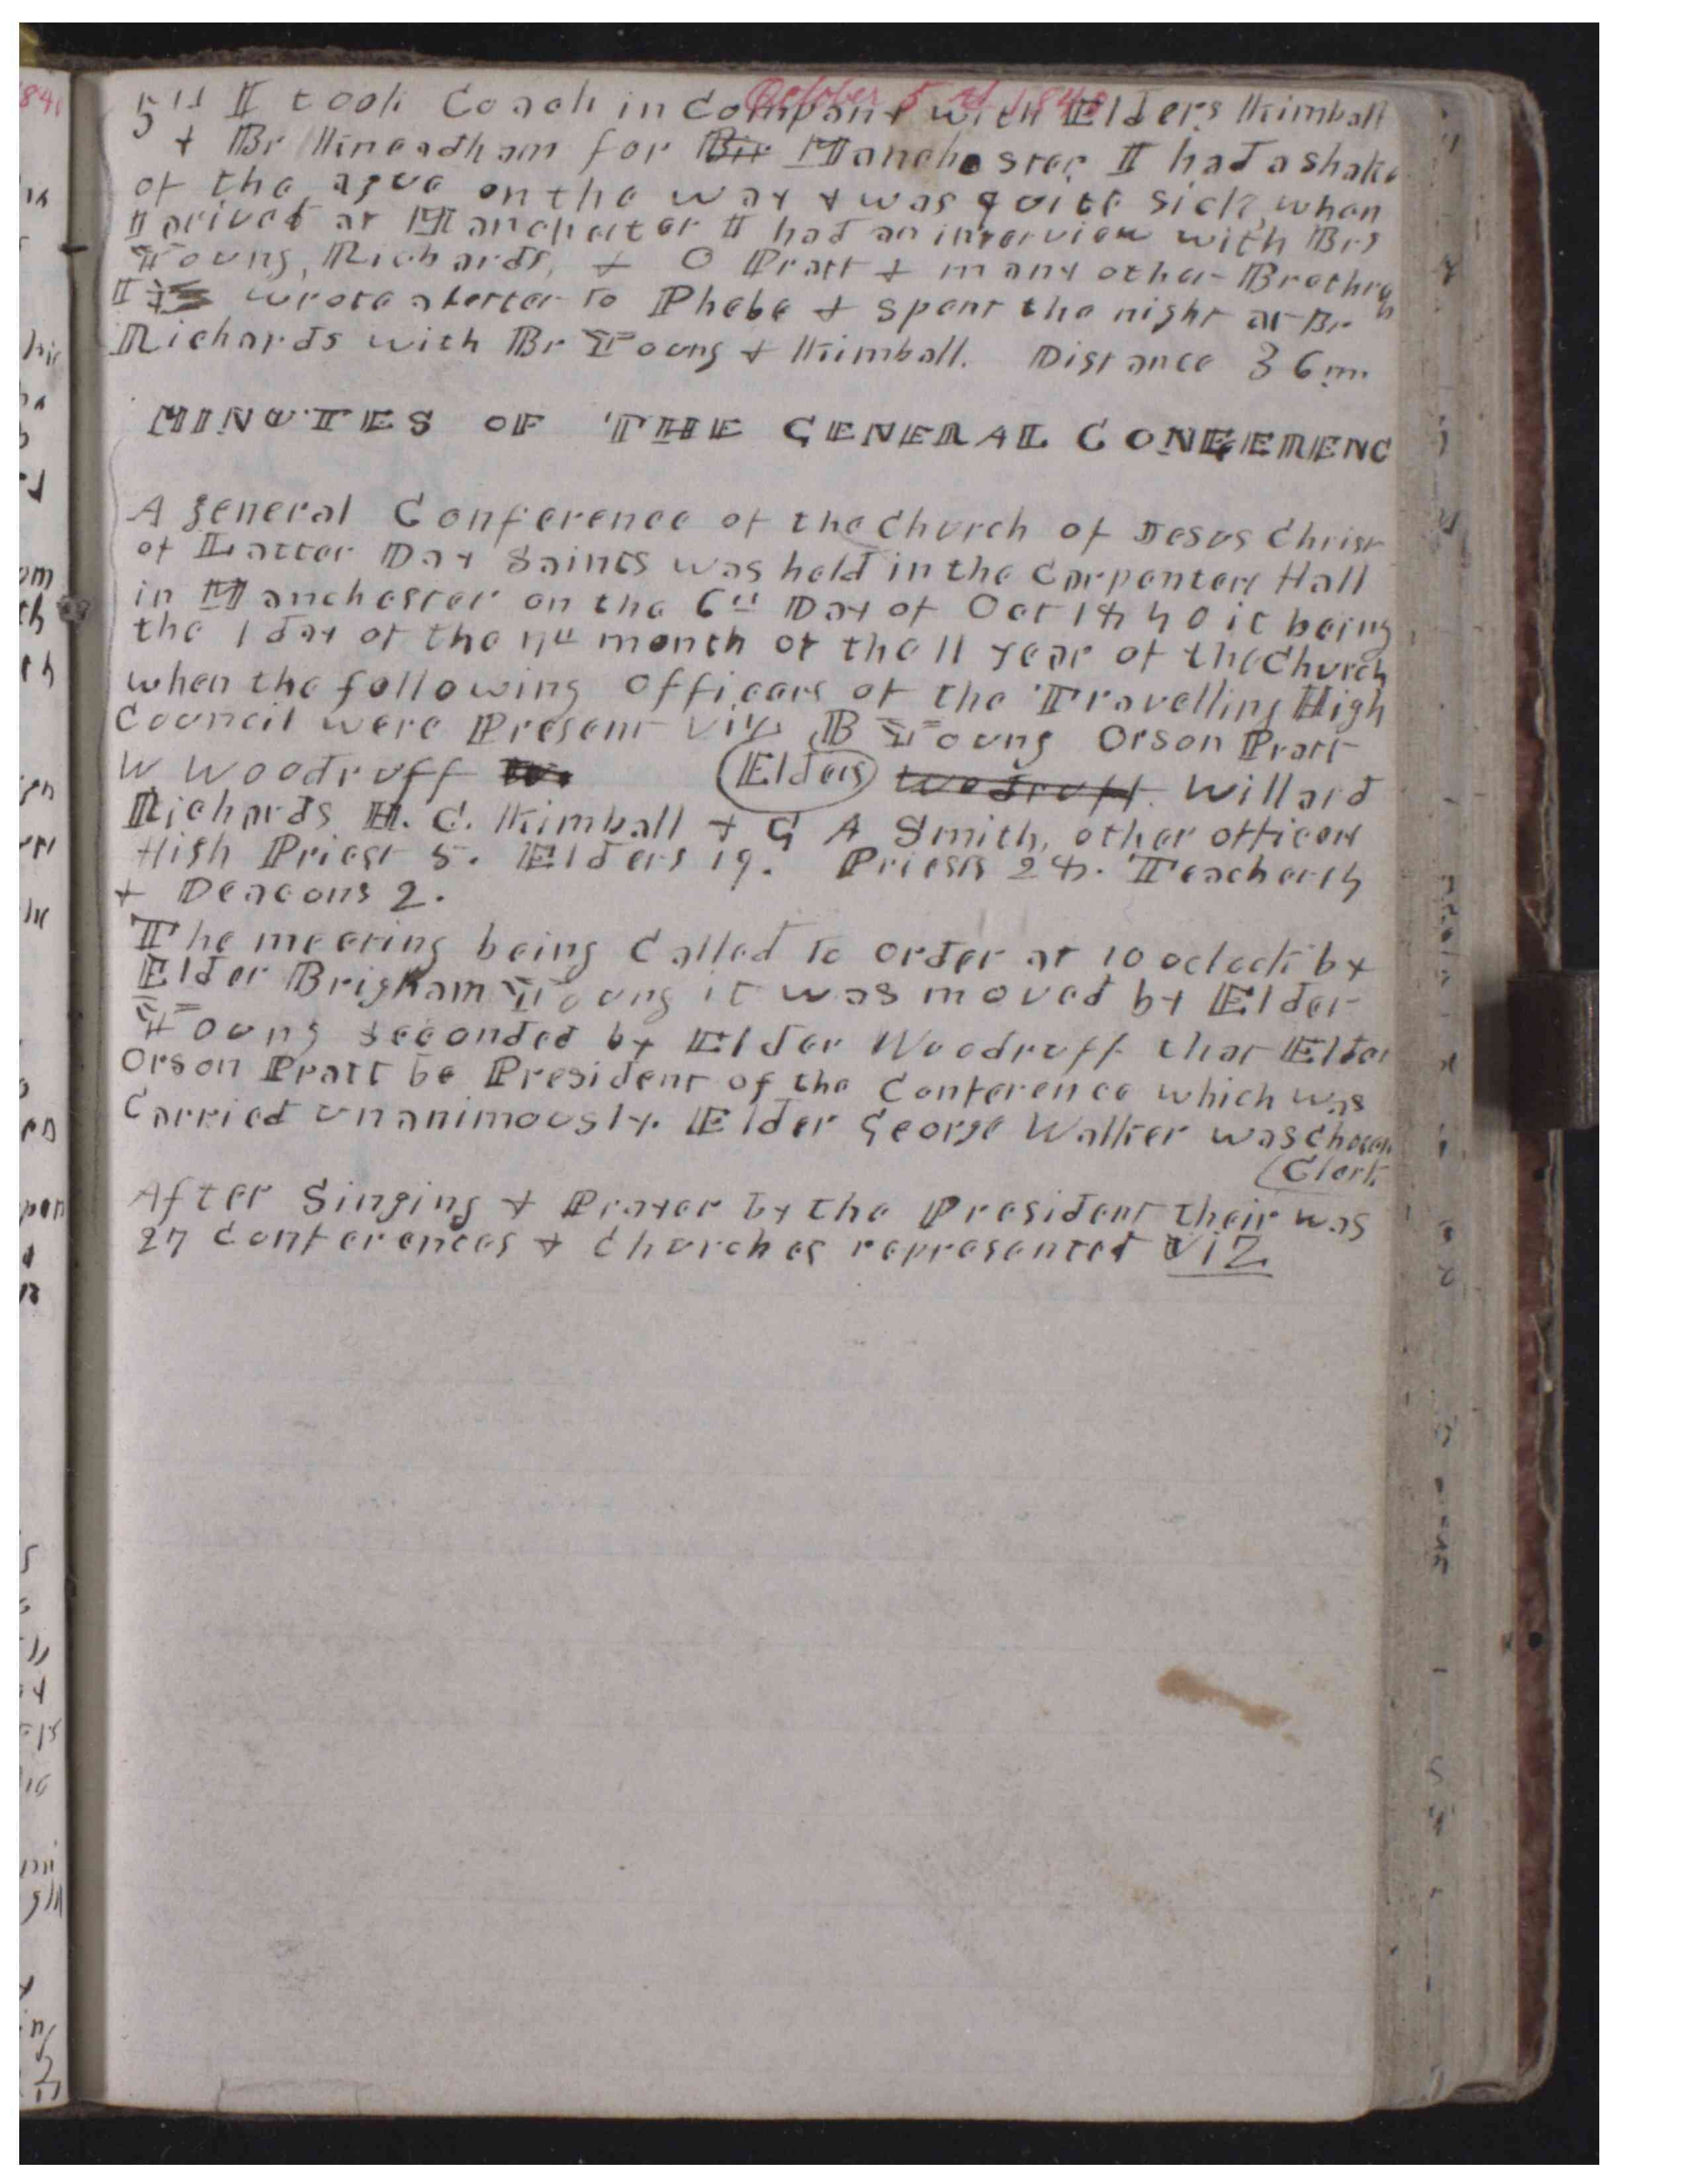 October 5th 1840
5th I took Coach in Company with Elders Kimball
& Br Kineadham for Bir Manchester I had a shake
of the ague on the way & was quite sick, when
I arived at Manchester I had an interview with Brs
Young, Richards, & O Pratt & many other Brethren
I wrote a letter to Phebe & spent the night at Br
Richards with Br Young & Kimball. Distance 36 m.
MINUTES OF THE GENERAL CONFERENC
A general Conference of the Church of Jesus Christ
of Latter Day Saints was held in the Carpenters Hall
in Manchester on the 6th Day of Oct 1840 it being
the 1 day of the 7th month of the 11 year of the Church
when the following officers of the Travelling High
Council were Present viz, B Young Orson Pratt
W Woodruff Elders Wodruff. Willard
Richards H. C. Kimball & G A Smith, other officers
High Priest 5. Elders 19. Priests 28. Teachers 4
& Deacons 2.
The meeting being Called to order at 10 oclock by
Elder Brigham Young it was moved by Elder
Young seconded by Elder Woodruff that Elder
Orson Pratt be President of the Conference which was
Carried unanimously. Elder George Walker was chosen
Clerk
After Singing & Prayer by the President their was
27 Conferences & Churches represented VIZ